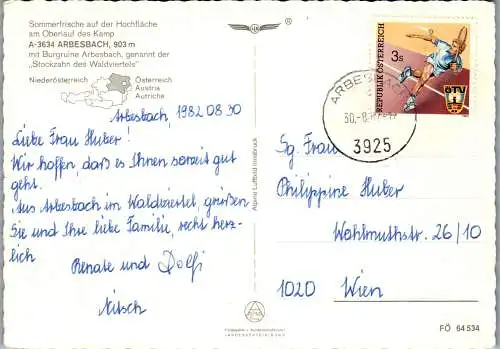 Sommerfrische auf der Hochfläche
am Oberlauf des Kamp
A-3634 ARBESBACH, 903 m
mit Burgruine Arbesbach, genannt der
„Stockzahn des Waldviertels"
Niederösterreich
Österreich
Austria
Autriche
Arbesbach, 1982 08 30
Liebe Frau Huber!
Wir hoffen, daß es Ihnen soweit gut
geht.
Aus Arbesbach im Waldviertel, grüßen
Sie und Ihre liebe Familie, recht herz-
lich
Renate und Dolfi
Nitsch
Alpine Luftbild Innsbruck
®
REPUBLIK ÖSTERREICH
3 s
ÖTV
ARBESBACH
30.-8.
3925
Sg Frau
Philippine Huber
Wohlmuthstr. 26/10
1020 Wien
FÖ 64 534